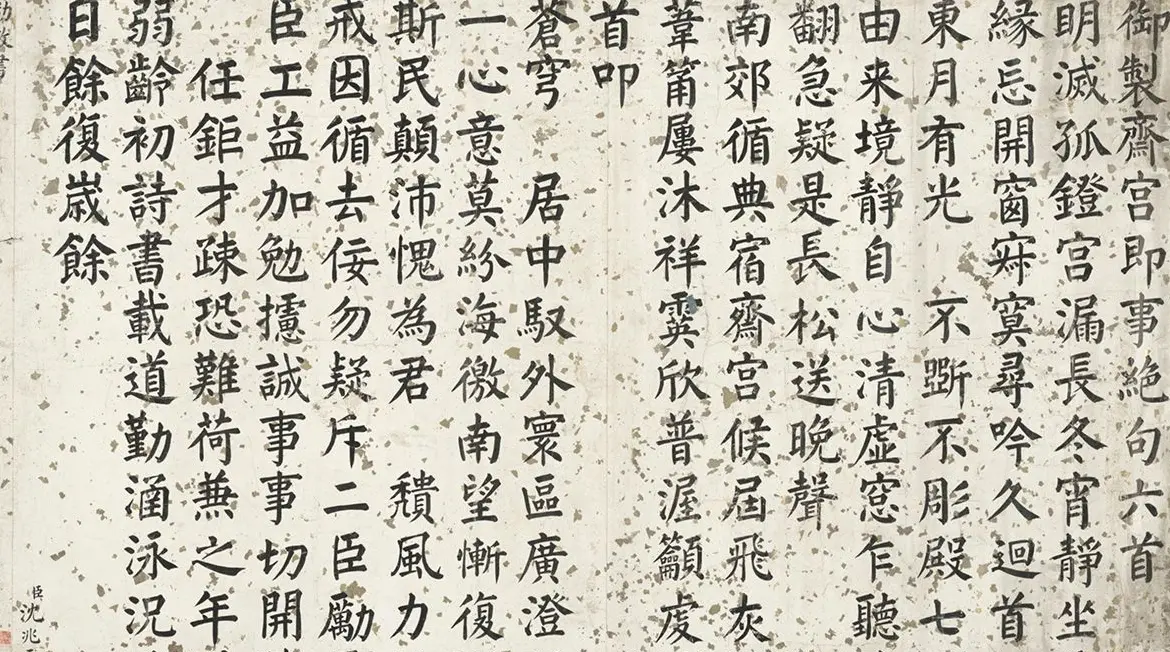 御製齋宮即事絶句六首
明滅孤鐙宫漏長冬宵靜坐
緣忘開窗寂寞尋吟久迴首
東月有光 不斲不彫殿七
由来境靜自心清虛窓乍聽
翻急疑是長松送晚聲
南郊循典宿齋宮候屆飛灰
葦莆屢沐祥霙欣普渥籲虔
首叩
蒼穹 居中馭外寰區廣澄
一心意莫紛海徼南望慚復
斯民顛沛愧為君 穨風力
戒因循去佞勿疑斥二臣勵
臣工益加勉攄誠事事切開
任鉅才疎恐難荷兼之年
弱齡初詩書載道勤涵泳況
日餘復歲餘
臣沈兆